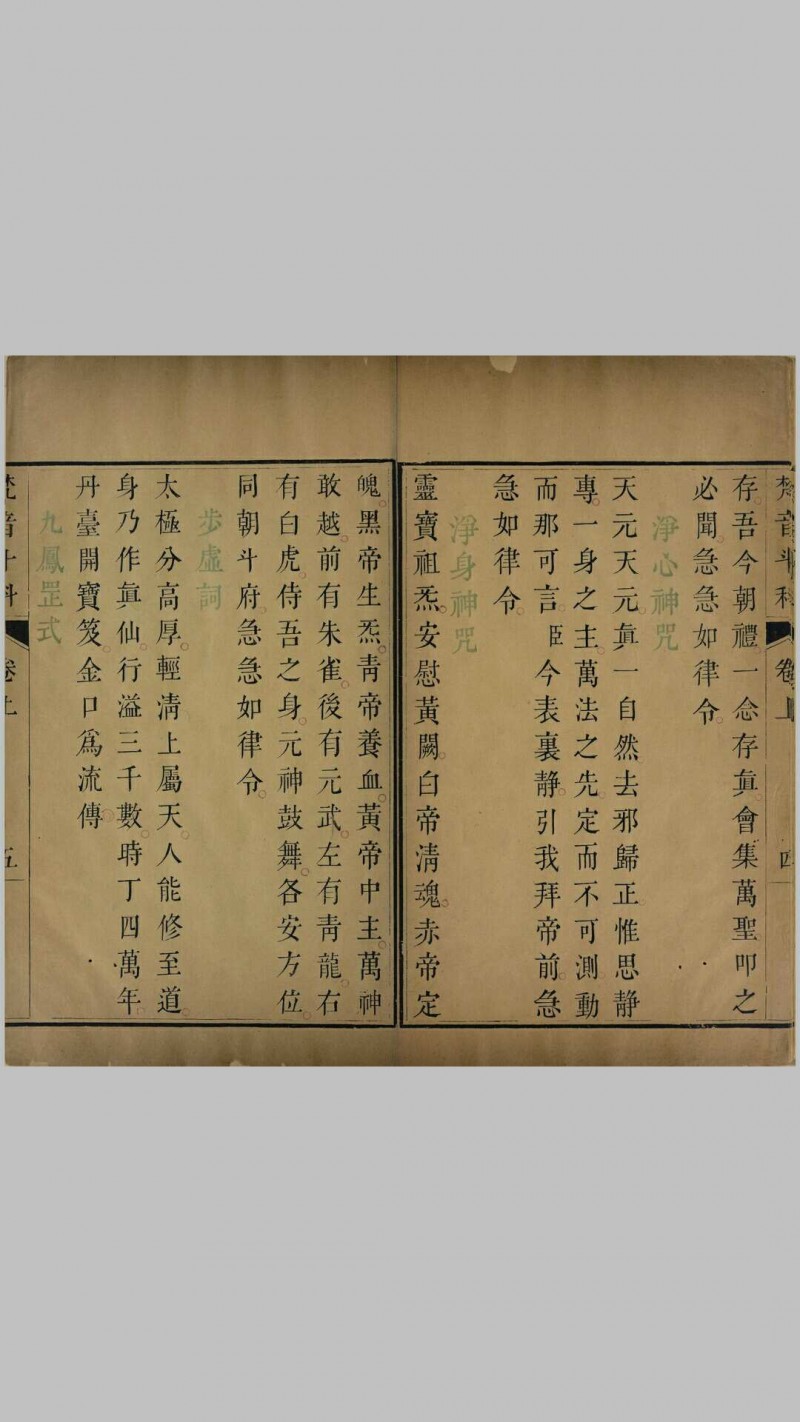 梵音斗科 卷上 四
存吾今朝禮一念存眞會集萬聖叩之
必聞急急如律令
淨心神咒
天元天元眞一自然去邪歸正惟思静
專一身之主萬法之先定而不可測動
而那可言臣今表裏静引我拜帝前急
急如律令
淨身神咒
靈寶祖炁安慰黃闕白帝淸魂赤帝定
魄黑帝生炁靑帝養血黃帝中主萬神
敢越前有朱雀後有元武左有靑龍右
有白虎侍吾之身元神鼓舞各安方位
同朝斗府急急如律令
步虛詞
太極分高厚輕淸上屬天人能修至道
身乃作眞仙行溢三千數時丁四萬年
丹臺開寶笈金口爲流傳
九鳳罡式
梵音斗科 卷上 五